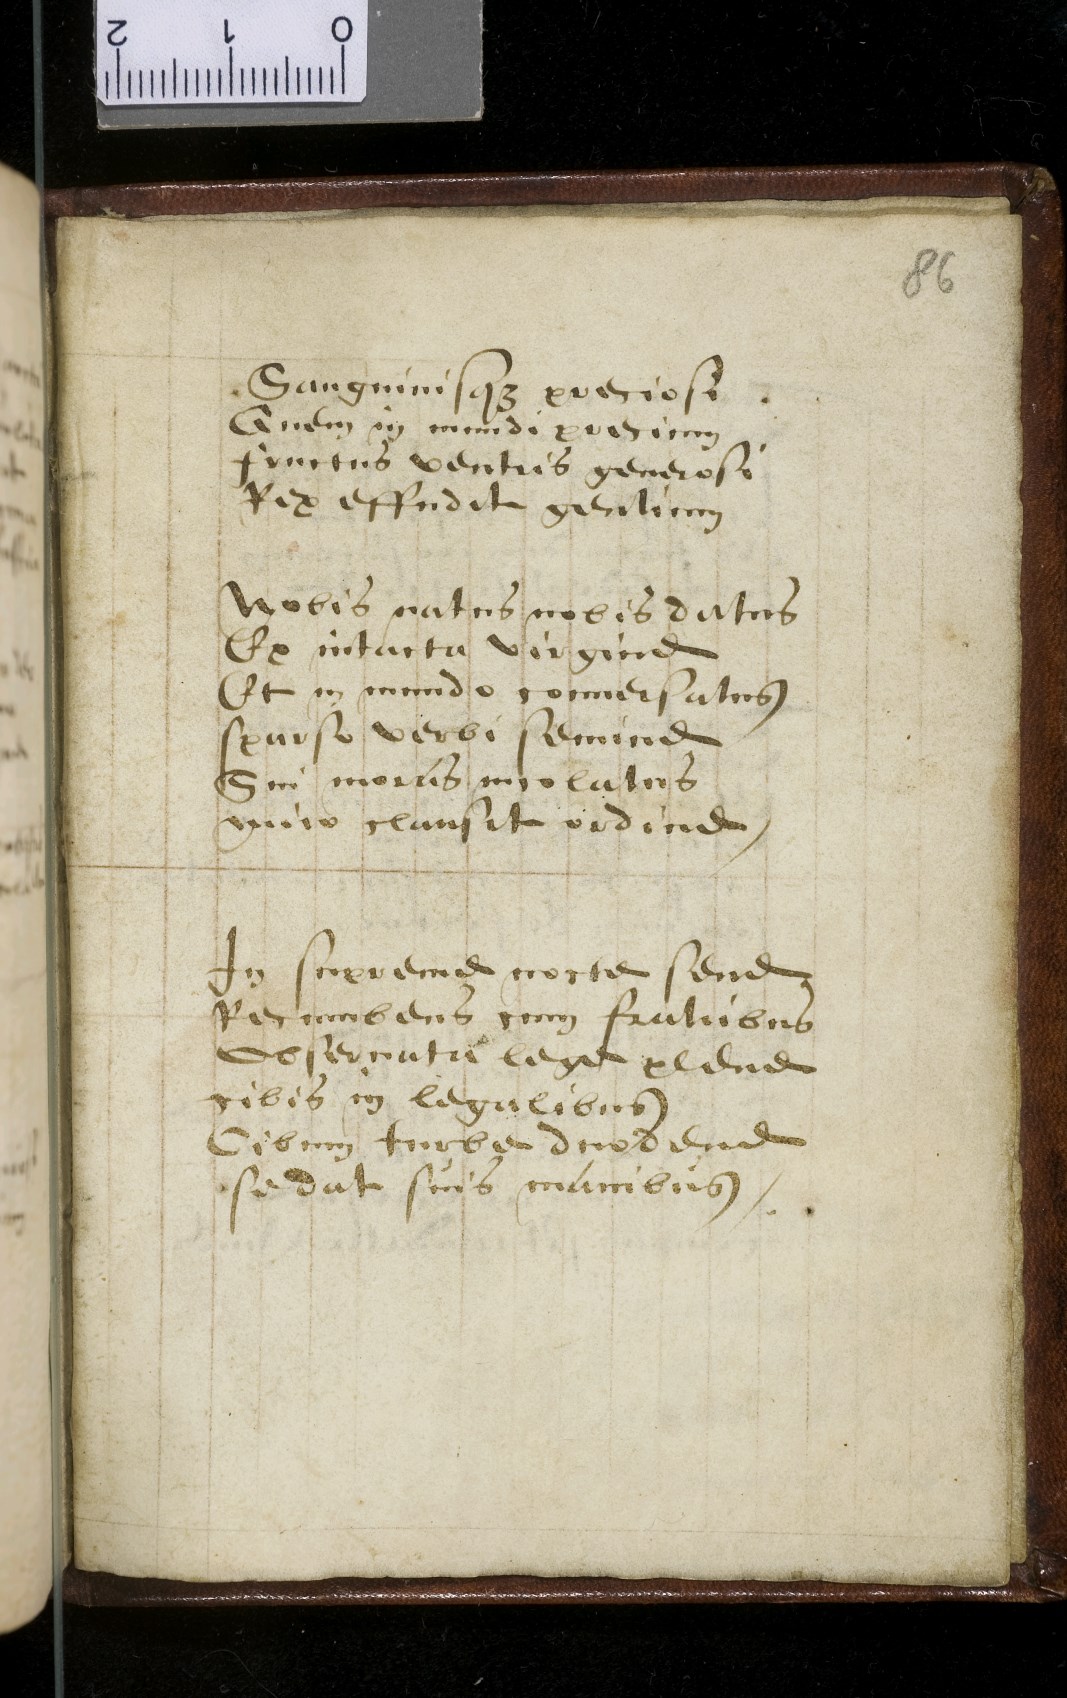 2 1 0
86
Sanguinisqꝫ preciosi .
Quem in mundi precium
fructus ventris generosi
Rex effudit gentium
Nobis natus nobis datus
Ex intacta virgine
Et in mundo conuersatus
sparso verbi semine
Sui moras incolatus
miro clausit ordine /
In supreme nocte sene
Recumbens cum fratribus
Obseruata lege plene
cibis in legalibus
Cibum turbe duodene
se dat suis manibus /.